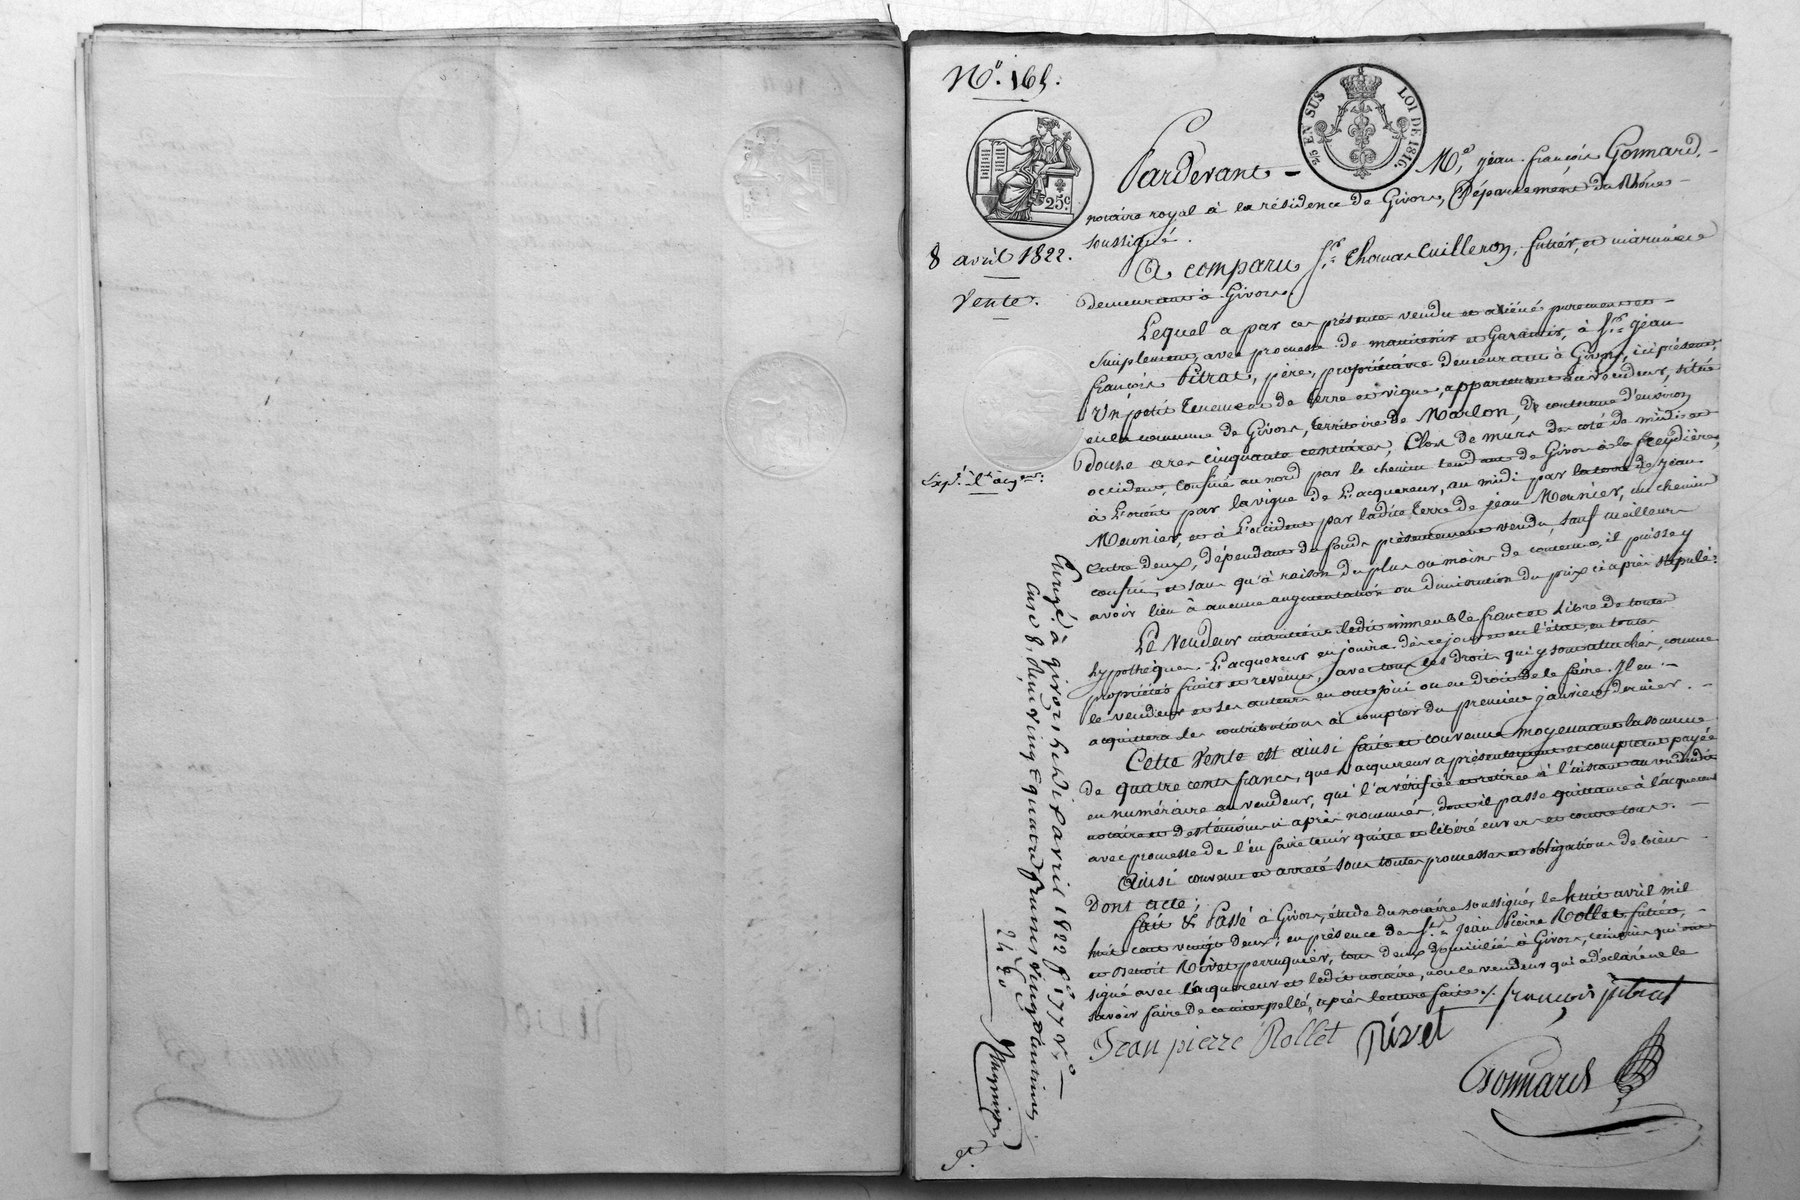 N.º 165.
25c.
2/5 EN SUS LOI DE 1816.
8 avril 1822.
Vente.
Exp.º à l'acq.eur
Pardevant - M.e jean françois Gonnard, -
notaire royal à la résidence de Givors, Département du Rhône -
soussigné.
A comparu S.r Thomas Cuilleron, futier, et marinier
demeurant à Givors.
Lequel a par ces présentes vendu et aliéné purement et -
simplement, avec promesse de maintenir et garantir, à S.r jean
françois Pitrat, père, propriétaire demeurant à Givors, ici présent,
Un petit tenement de terre et vigne, appartenant au vendeur, situé
en la commune de Givors, territoire de Marlon, de contenue d'environ
Douse ares cinquante centiares, Clos de murs de coté de midi et
occident, confiné au nord par le chemin tendant de Givors à la freydière,
à L'orient par la vigne de L'acquereur, au midi par la terre de jean
Meunier, et à L'occident par ladite terre de jean Meunier, un chemin
entre deux, dépendant du fonds présentement vendu, sauf meilleurs
confins, et sans qu'à raison du plus ou moins de contenue, il puisse y
avoir lieu à aucune augmentation ou diminution du prix ci après stipulé.
Le Vendeur maintient ledit immeuble franc et libre de toutes
hypothèques. L'acquereur en jouira dès ce jour et en l'état, en toutes
propriétés fruits et revenus, avec tous les droits qui y sont attachés, comme
le vendeur et ses auteurs en ont joui ou eu droit de le faire. Il en -
acquittera les contributions à compter du premier janvier dernier. -
Cette Vente est ainsi faite et convenue moyennant la somme
de quatre cents francs, que l'acquereur a présentement et comptant payée
en numéraire au vendeur, qui l'a vérifiée et retirée à l'instant au vu dudit
notaire et des témoins ci après nommés, dont il passe quittance à l'acquereur
avec promesse de l'en faire tenir quitte et libéré envers et contre tous. -
Ainsi convenu et arrêté sous toutes promesses et obligations de biens -
Dont acte;
fait & Passé à Givors, étude du notaire soussigné, le huit avril mil
huit cent vingt deux; en présence de S.rs jean Pierre Rollet, futier, -
et Benoit Rivet perruquier, tous deux domiciliés à Givors, témoins qui ont
signé avec l'acquereur et ledit notaire, non le vendeur qui a déclaré ne le
savoir faire de ce interpellé, après lecture faite./. françois pitrat
Jean pierre Rollet Rivet
Gonnard
Enregé à givors le dix avril 1822 f.º 177 v.º
Case 8, Reçu vingt quatre francs vingt centimes
24 f 20